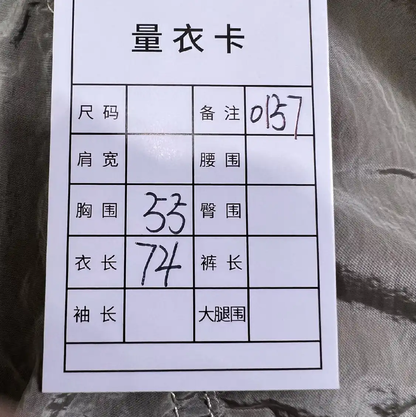 量衣卡
尺码 备注 0157
肩宽 腰围
胸围 55 臀围
衣长 74 裤长
袖长 大腿围